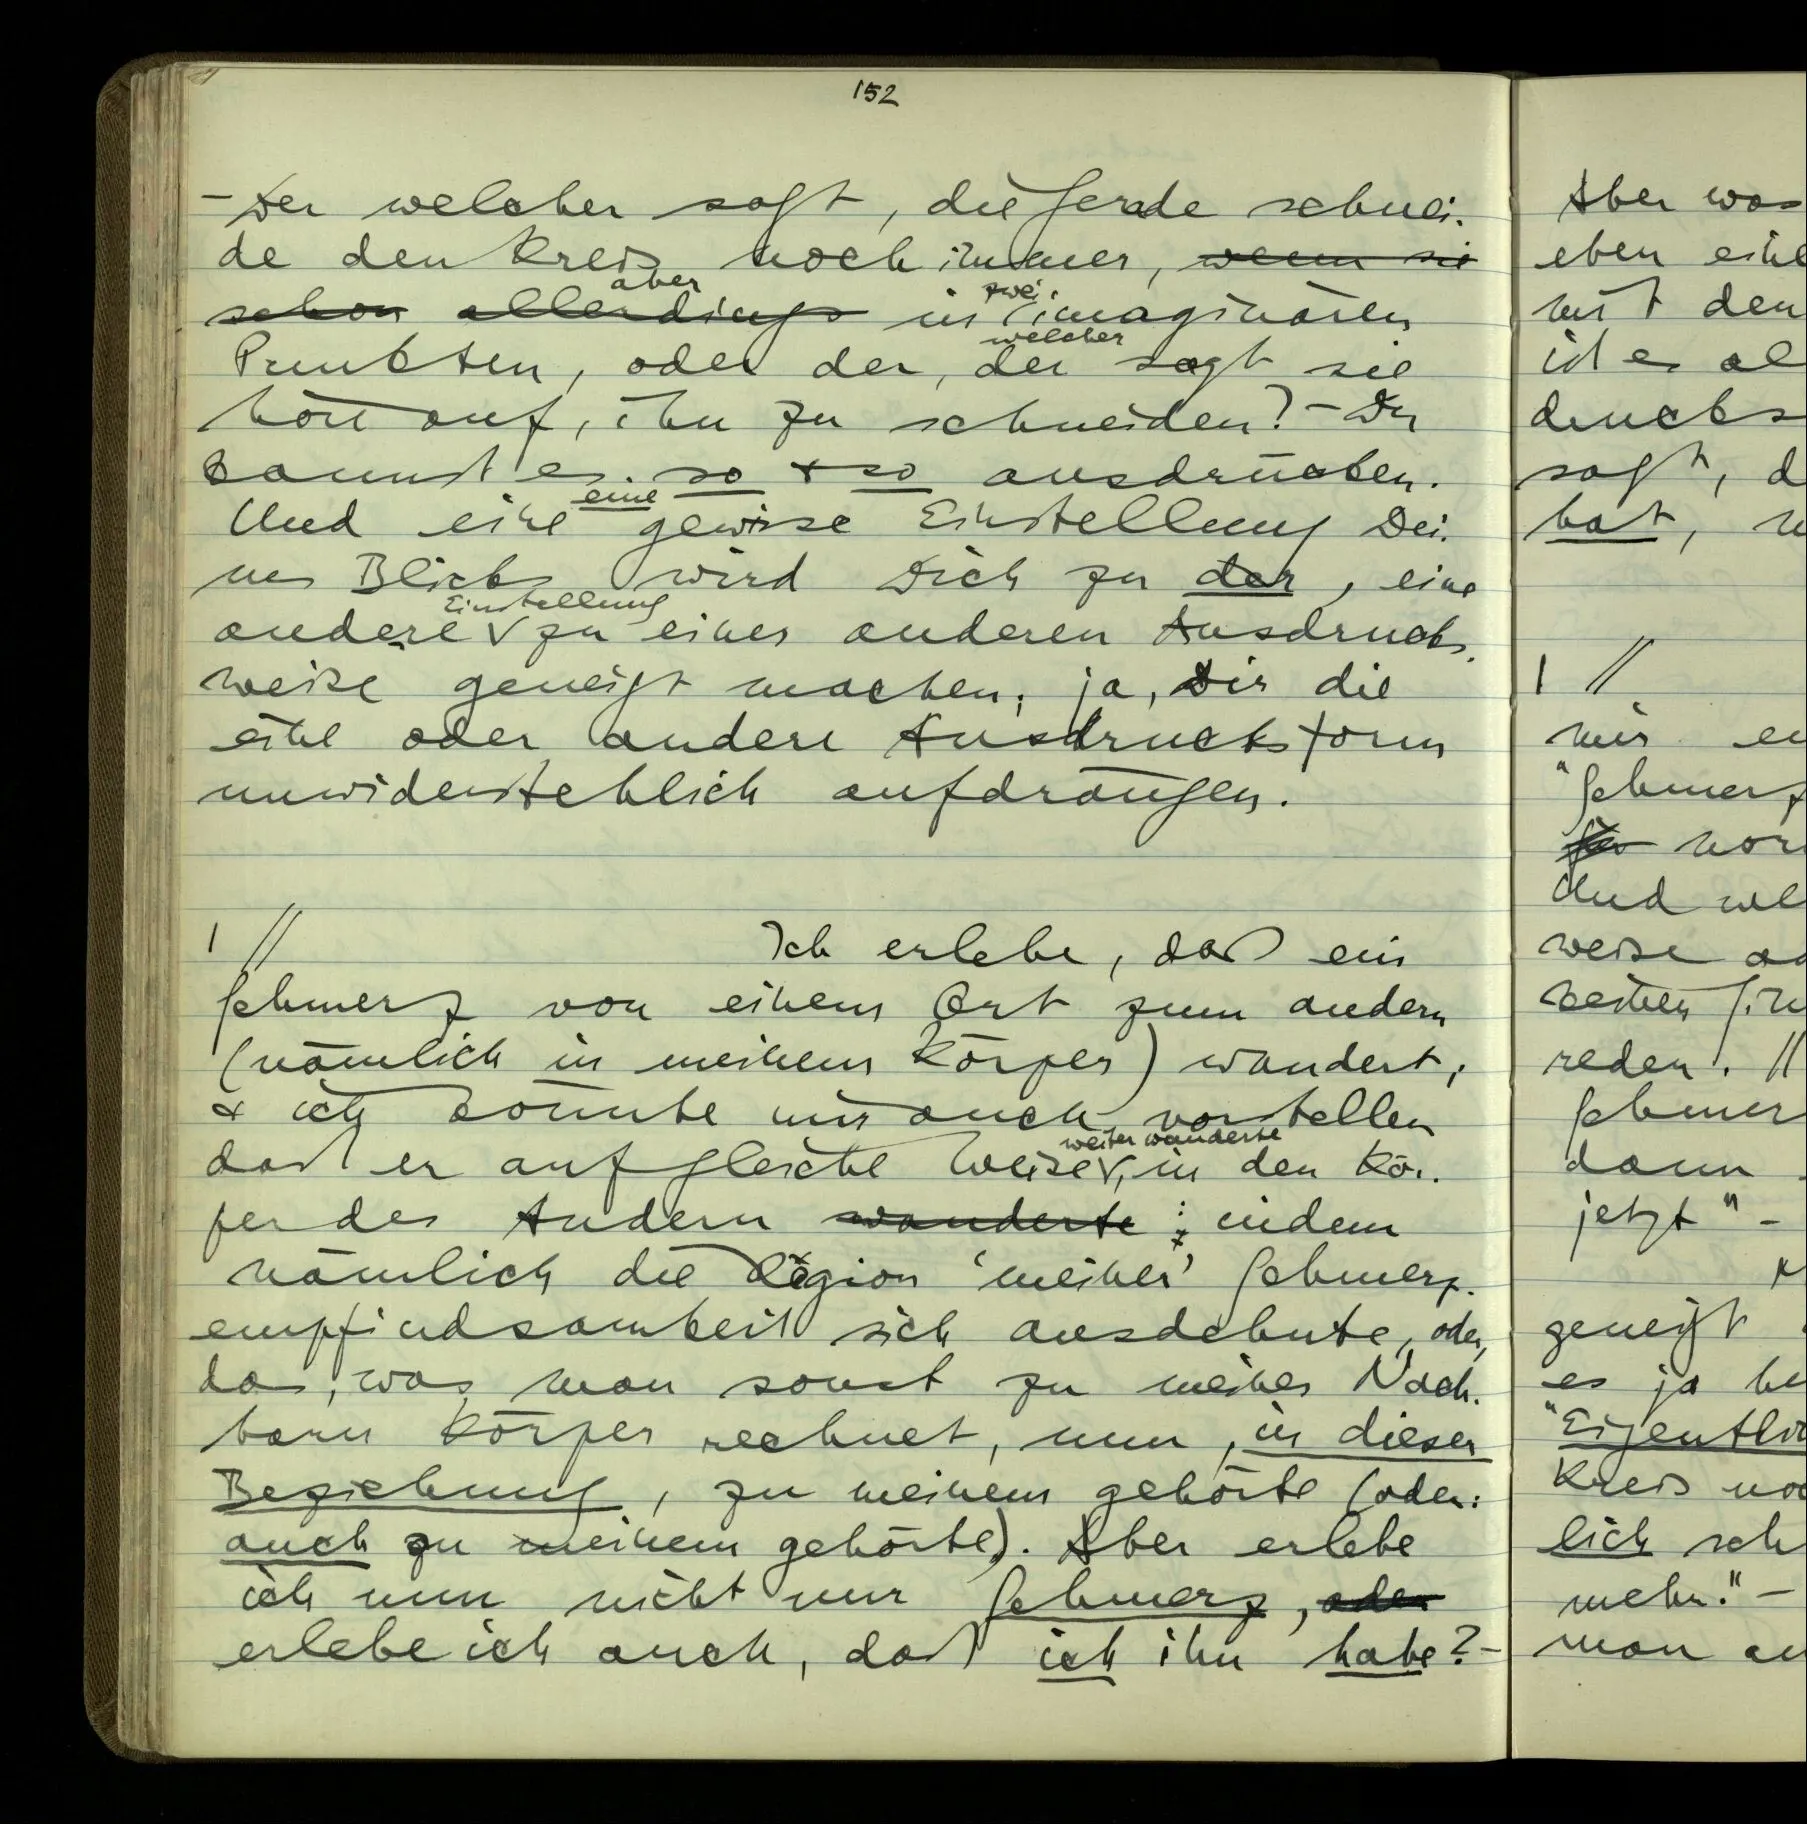 152
– Der welcher sagt, die Gerade schnei-
de den Kreis noch immer, wenn sie
aber zwei
schon allerdings in imaginären
welcher
Punkten, oder der, der sagt sie
hört auf, ihn zu schneiden? – Du
kannst es so + so ausdrücken.
eine
Und eine gewisse Einstellung Dei-
nes Blicks wird Dich zu der, eine
Einstellung
andere zu einer anderen Ausdrucks-
weise geneigt machen; ja, Dir die
eine oder andere Ausdrucksform
unwiderstehlich aufdrängen.
I // Ich erlebe, daß ein
Schmerz von einem Ort zum andern
(nämlich in meinem Körper) wandert;
+ ich könnte mir auch vorstellen
weiter wanderte
daß er auf gleiche Weise, in den Kör-
per des Andern wanderte; indem
nämlich die Region 'meiner' Schmerz-
empfindsamkeit sich ausdehnte, oder,
das, was man sonst zu meines Nach-
barn Körper rechnet, nun, in dieser
Beziehung, zu meinem gehörte (oder:
auch zu meinem gehörte). Aber erlebe
ich nun nicht nur Schmerz, oder
erlebe ich auch, daß ich ihn habe? –
Aber was
eben eine
mit den
ist es al
drucks
sagt, d
hat, w
I //
mir
"Schmerz
Und we
weise
reden. //
Schmer
dann
jetzt" –
geneigt
es ja
"Eigentlic
Kreis noc
lich sch
mehr." –
man an